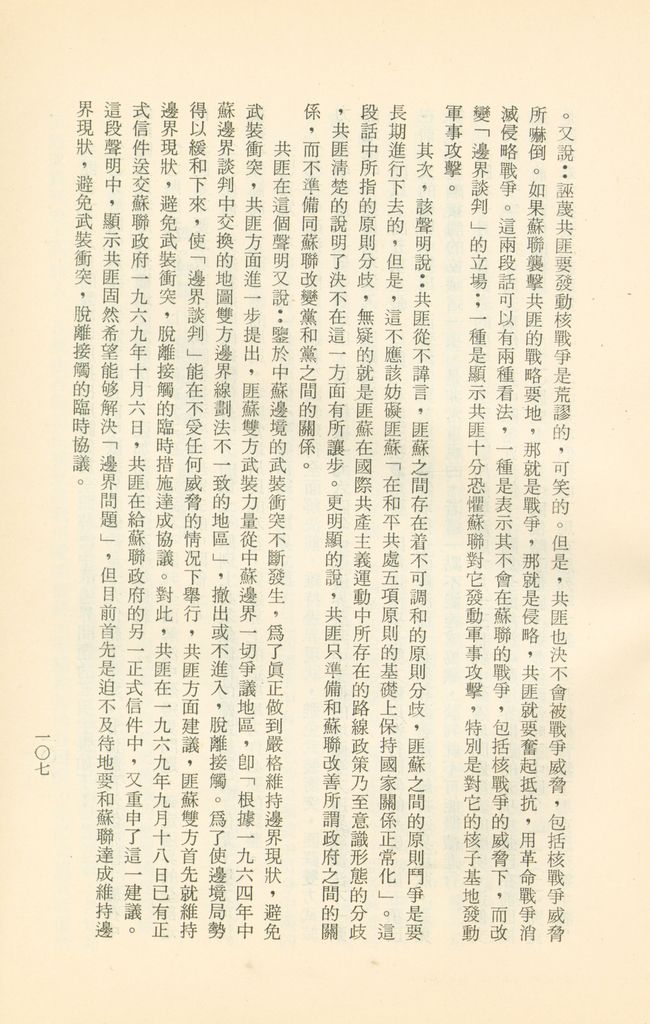 。又說：誣蔑共匪要發動核戰爭是荒謬的，可笑的。但是，共匪也決不會被戰爭威脅，包括核戰爭威脅
所嚇倒。如果蘇聯襲擊共匪的戰略要地，那就是戰爭，那就是侵略，共匪就要奮起抵抗，用革命戰爭消
滅侵略戰爭。這兩段話可以有兩種看法，一種是表示其不會在蘇聯的戰爭，包括核戰爭的威脅下，而改
變「邊界談判」的立場；一種是顯示共匪十分恐懼蘇聯對它發動軍事攻擊，特別是對它的核子基地發動
軍事攻擊。
其次，該聲明說：共匪從不諱言，匪蘇之間存在着不可調和的原則分歧，匪蘇之間的原則鬥爭是要
長期進行下去的，但是，這不應該妨礙匪蘇「在和平共處五項原則的基礎上保持國家關係正常化」。這
段話中所指的原則分歧，無疑的就是匪蘇在國際共產主義運動中所存在的路線政策乃至意識形態的分歧
，共匪清楚的說明了決不在這一方面有所讓步。更明顯的說，共匪只準備和蘇聯改善所謂政府之間的關
係，而不準備同蘇聯改變黨和黨之間的關係。
共匪在這個聲明又說：鑒於中蘇邊境的武裝衝突不斷發生，爲了眞正做到嚴格維持邊界現狀，避免
武裝衝突，共匪方面進一步提出，匪蘇雙方武裝力量從中蘇邊界一切爭議地區，卽「根據一九六四年中
蘇邊界談判中交換的地圖雙方邊界線劃法不一致的地區」，撤出或不進入，脫離接觸。爲了使邊境局勢
得以緩和下來，使「邊界談判」能在不受任何威脅的情況下舉行，共匪方面建議，匪蘇雙方首先就維持
邊界現狀，避免武裝衝突，脫離接觸的臨時措施達成協議。對此，共匪在一九六九年九月十八日已有正
式信件送交蘇聯政府一九六九年十月六日，共匪在給蘇聯政府的另一正式信件中，又重申了這一建議。
這段聲明中，顯示共匪固然希望能夠解決「邊界問題」，但目前首先是迫不及待地要和蘇聯達成維持邊
界現狀，避免武裝衝突，脫離接觸的臨時協議。
一〇七